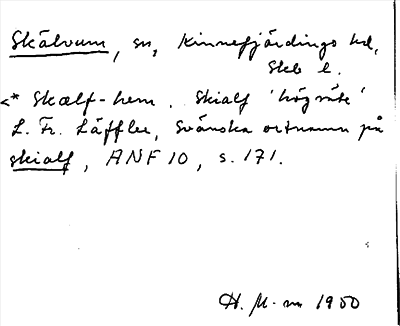 Skälvum, sn, Kinnefjärdings hd,
Skb l.
<* Skælf-hem. Skialf 'högsäte'
L. Fr. Läffler, Svänska ortnamn på
skialf, ANF 10, s. 171.
H. M-m 1950